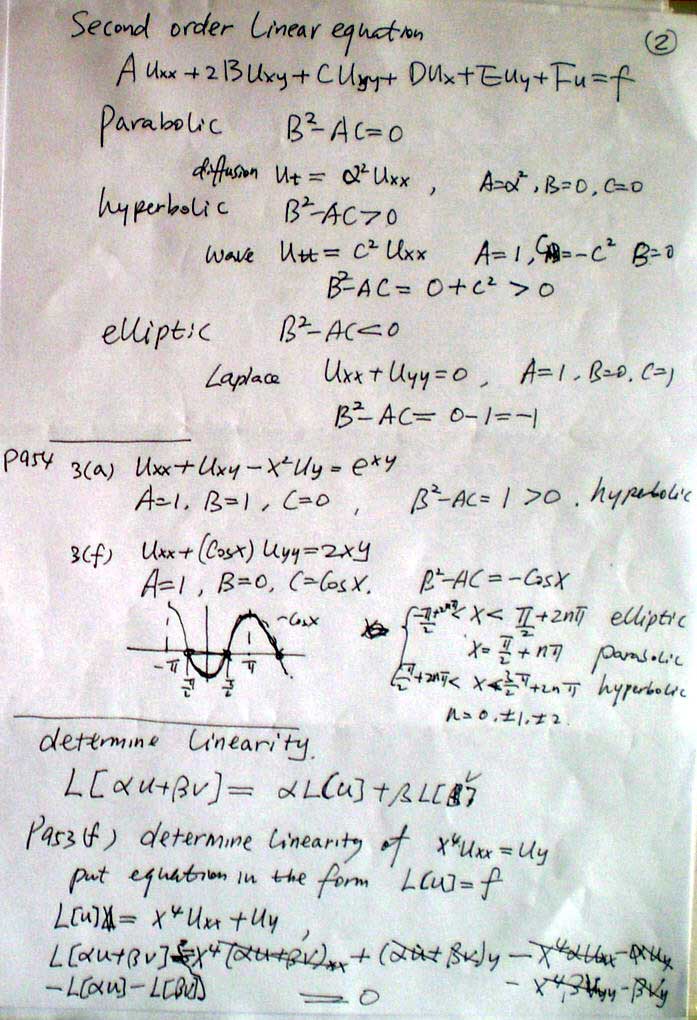 Second order Linear equation
②
A Uxx + 2B Uxy + C Uyy + D Ux + E Uy + F u = f
Parabolic B² - AC = 0
diffusion Ut = α² Uxx , A=α², B=0, C=0
hyperbolic B² - AC > 0
wave Utt = C² Uxx A = 1, C = -C² B=0
B² - AC = 0 + C² > 0
elliptic B² - AC < 0
Laplace Uxx + Uyy = 0 , A=1, B=0, C=1
B² - AC = 0 - 1 = -1
Pg54 3(a) Uxx + Uxy - x² Uy = e^xy
A=1, B=1, C=0 , B² - AC = 1 > 0 . hyperbolic
3(f) Uxx + (Cosx) Uyy = 2xy
A=1, B=0, C=Cosx. B² - AC = -Cosx
-Cosx
-π/2 + 2nπ < x < π/2 + 2nπ elliptic
-π π/2 3/2 π
x = π/2 + nπ parabolic
π/2 + 2nπ < x < 3/2 π + 2nπ hyperbolic
n = 0, ±1, ±2.
determine Linearity.
L[αu+βv] = αL[u] + βL[v]
Pg53(f) determine linearity of x⁴Uxx = Uy
put equation in the form L[u] = f
L[u] = x⁴ Uxx + Uy ,
L[αu+βv] = x⁴ (αu+βv)xx + (αu+βv)y - x⁴αUxx - αUy
- L[αu] - L[βv] - x⁴βVyy - βVy
= 0